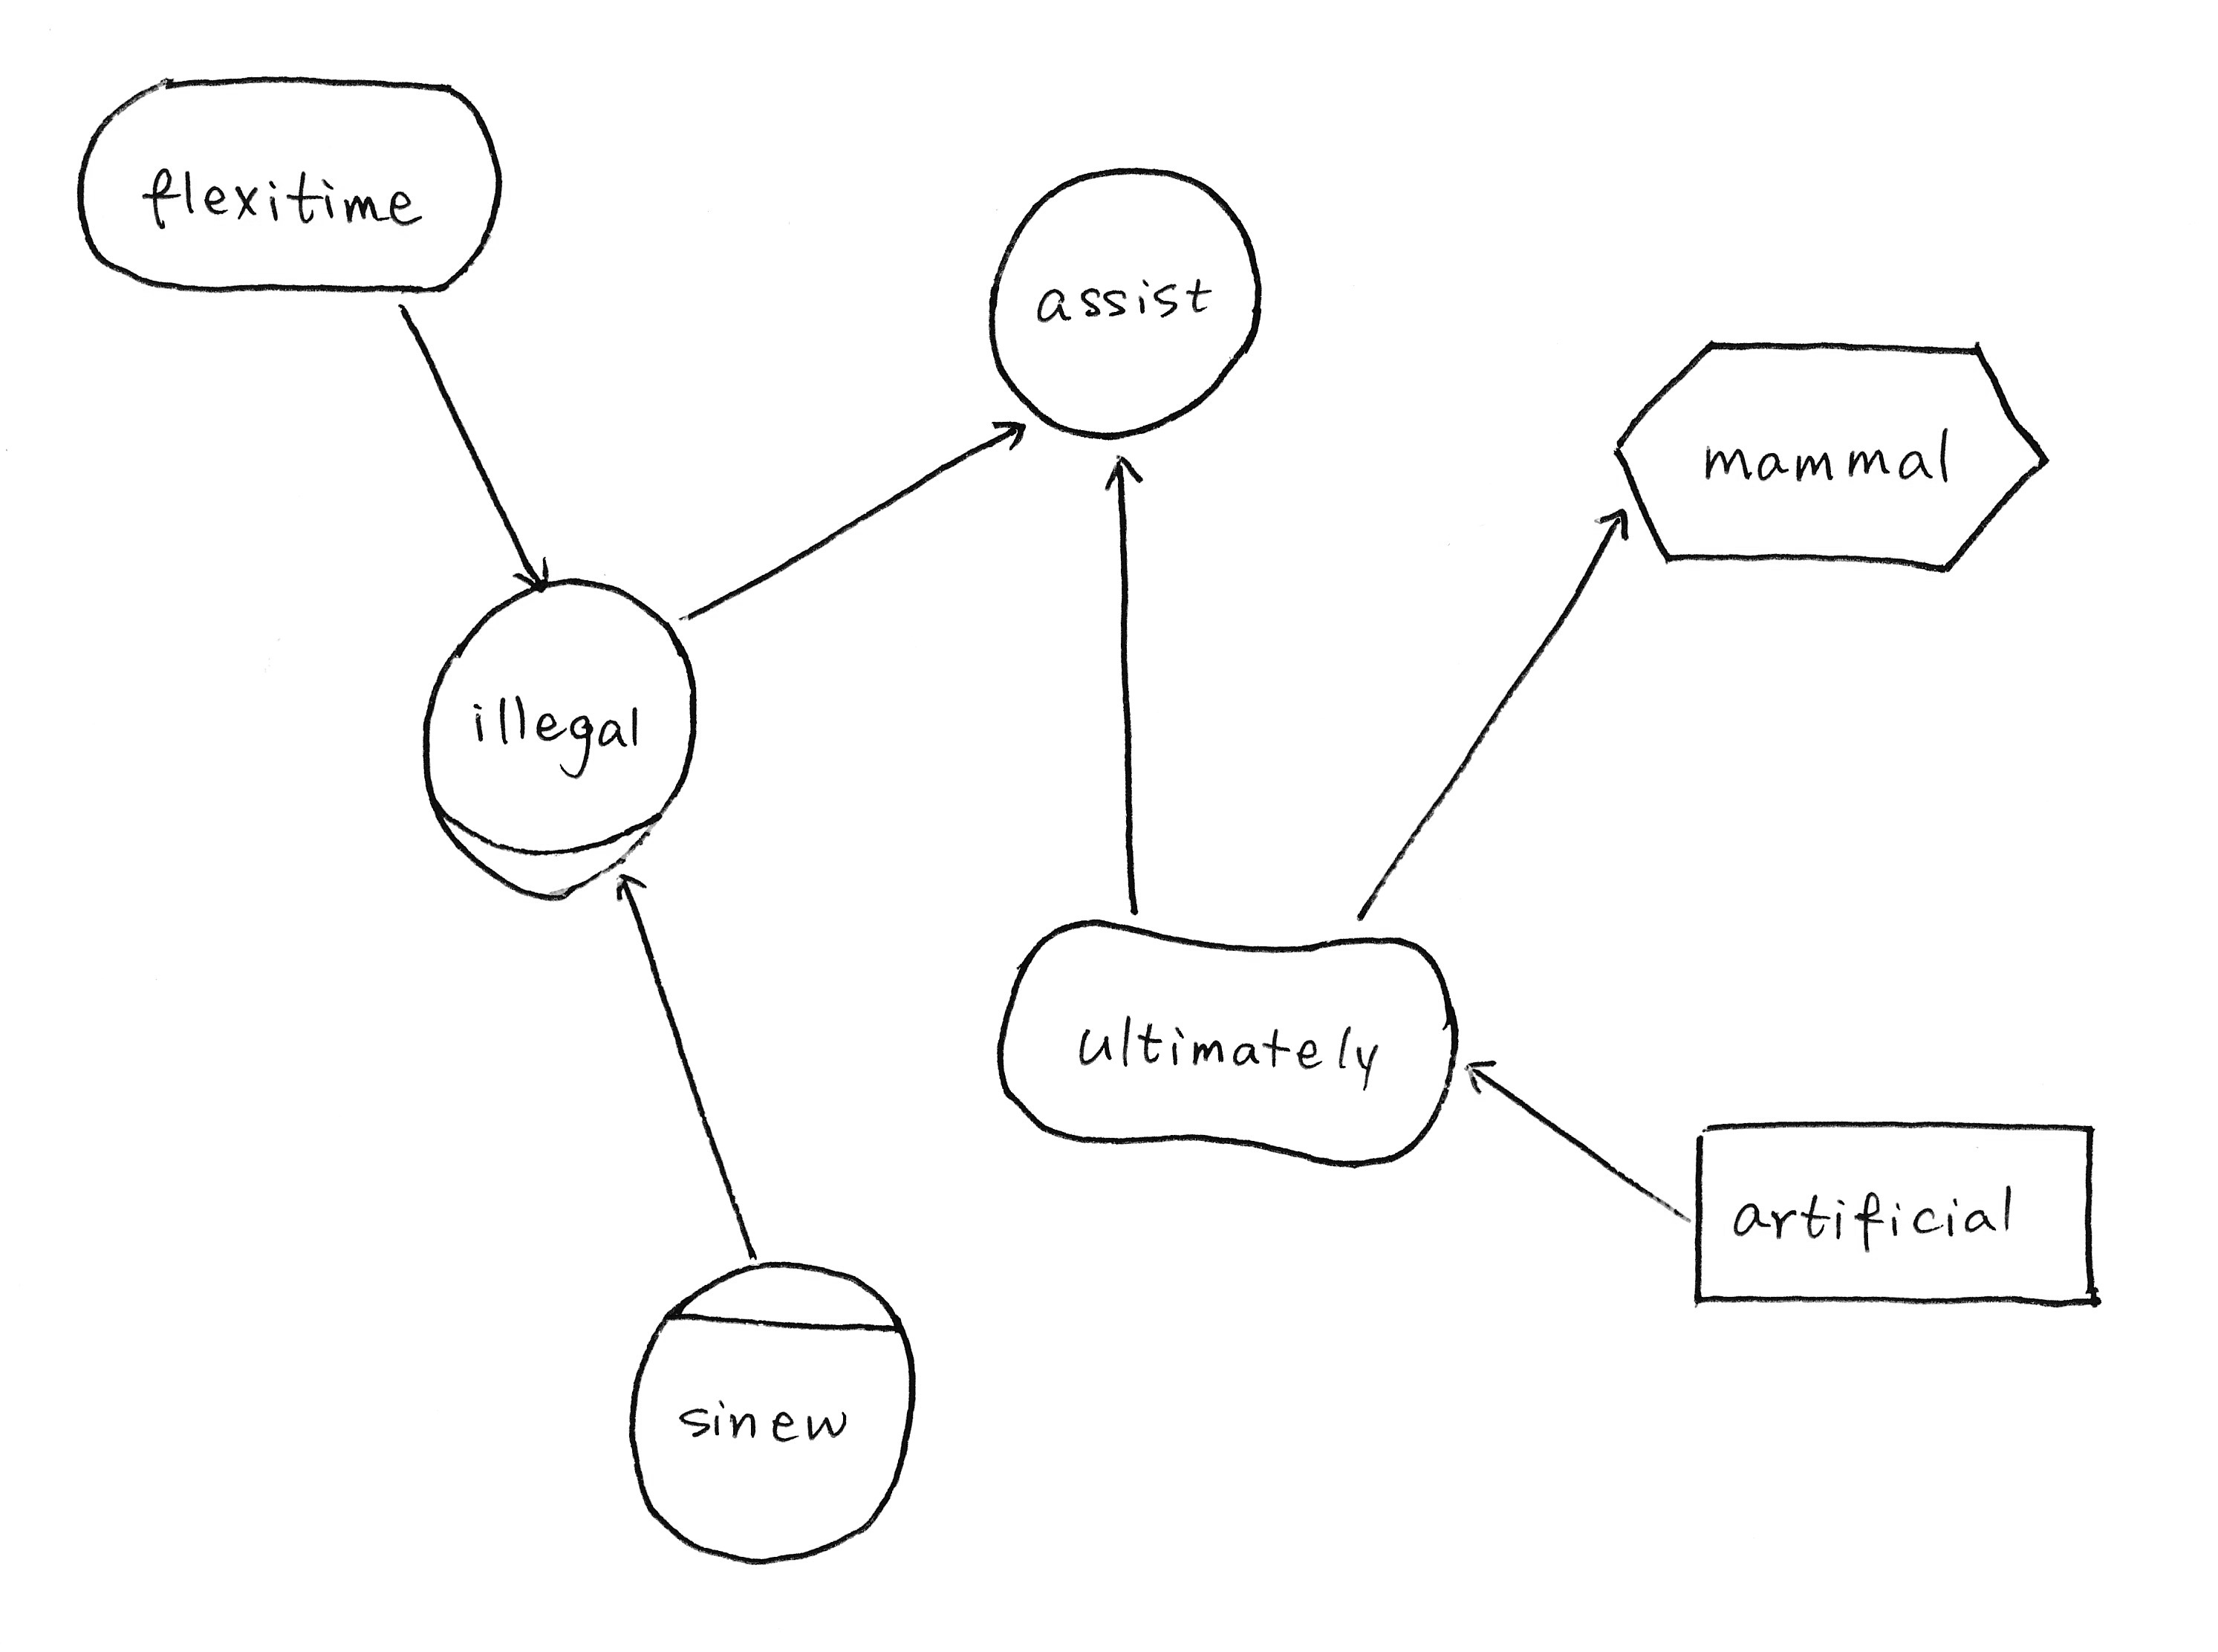 flexitime
assist
mammal
illegal
ultimately
artificial
sinew